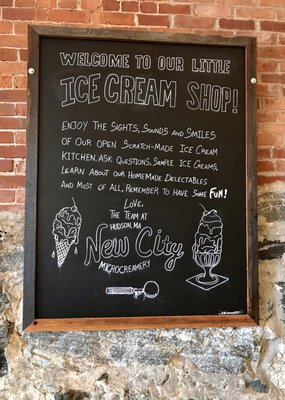 WELCOME TO OUR LITTLE
ICE CREAM SHOP!
ENJOY THE SIGHTS, SOUNDS AND SMILES
OF OUR OPEN SCRATCH-MADE ICE CREAM
KITCHEN. ASK QUESTIONS, SAMPLE ICE CREAMS,
LEARN ABOUT OUR HOMEMADE DELECTABLES
AND MOST OF ALL, REMEMBER TO HAVE SOME FUN!
LOVE,
THE TEAM AT
HUDSON, MA
New City
MICROCREAMERY